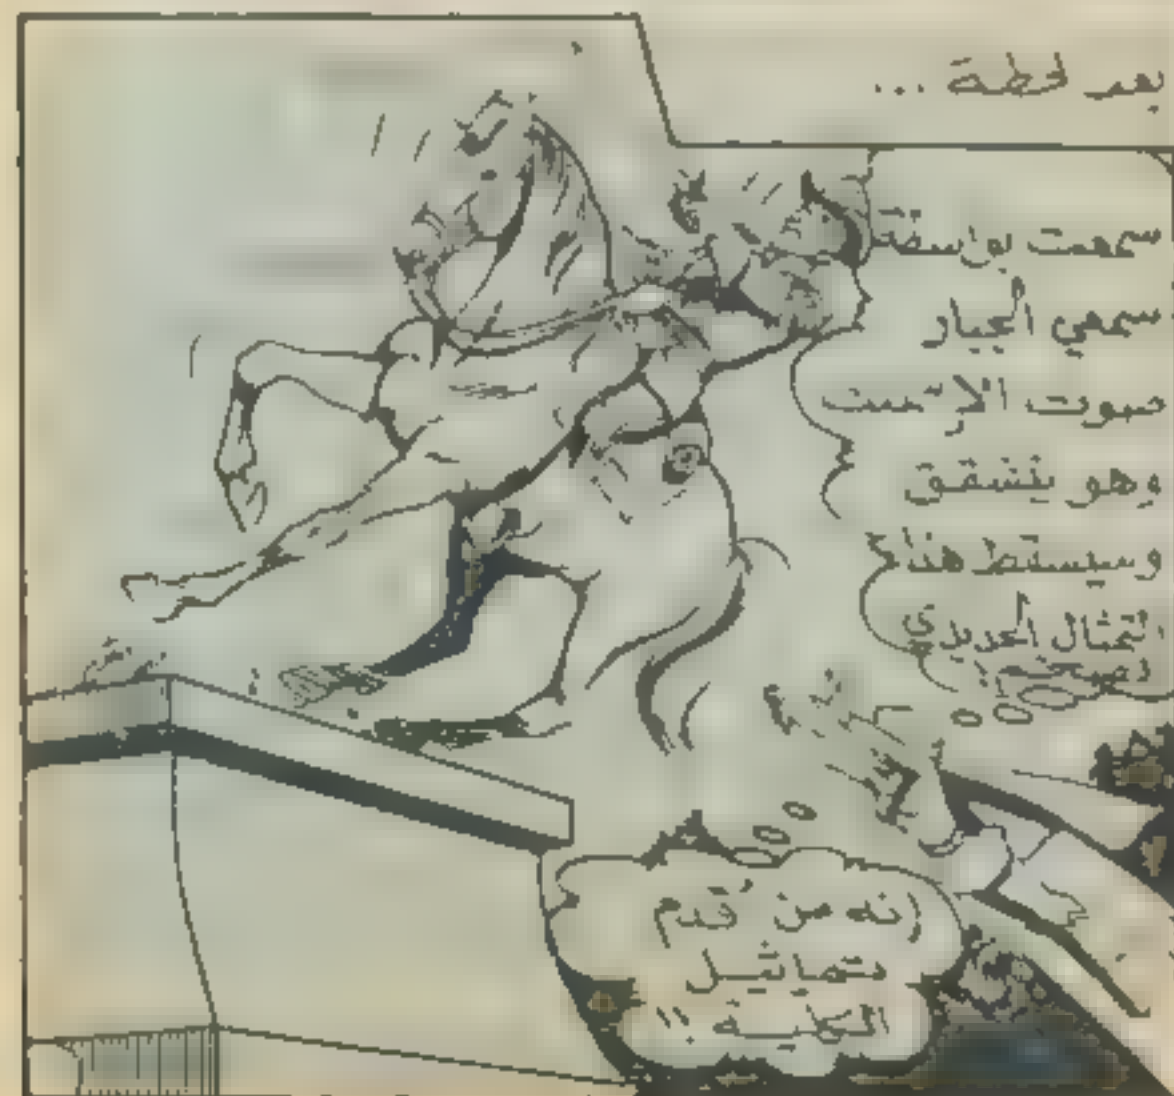 بعد لحظة ...
سمعت بواسطة
سمعي الجبار
صوت الاسمنت
وهو يتشقق
وسيسقط هذا
التمثال الحديدي
إنه من أقدم
تماثيل
الكلية !!